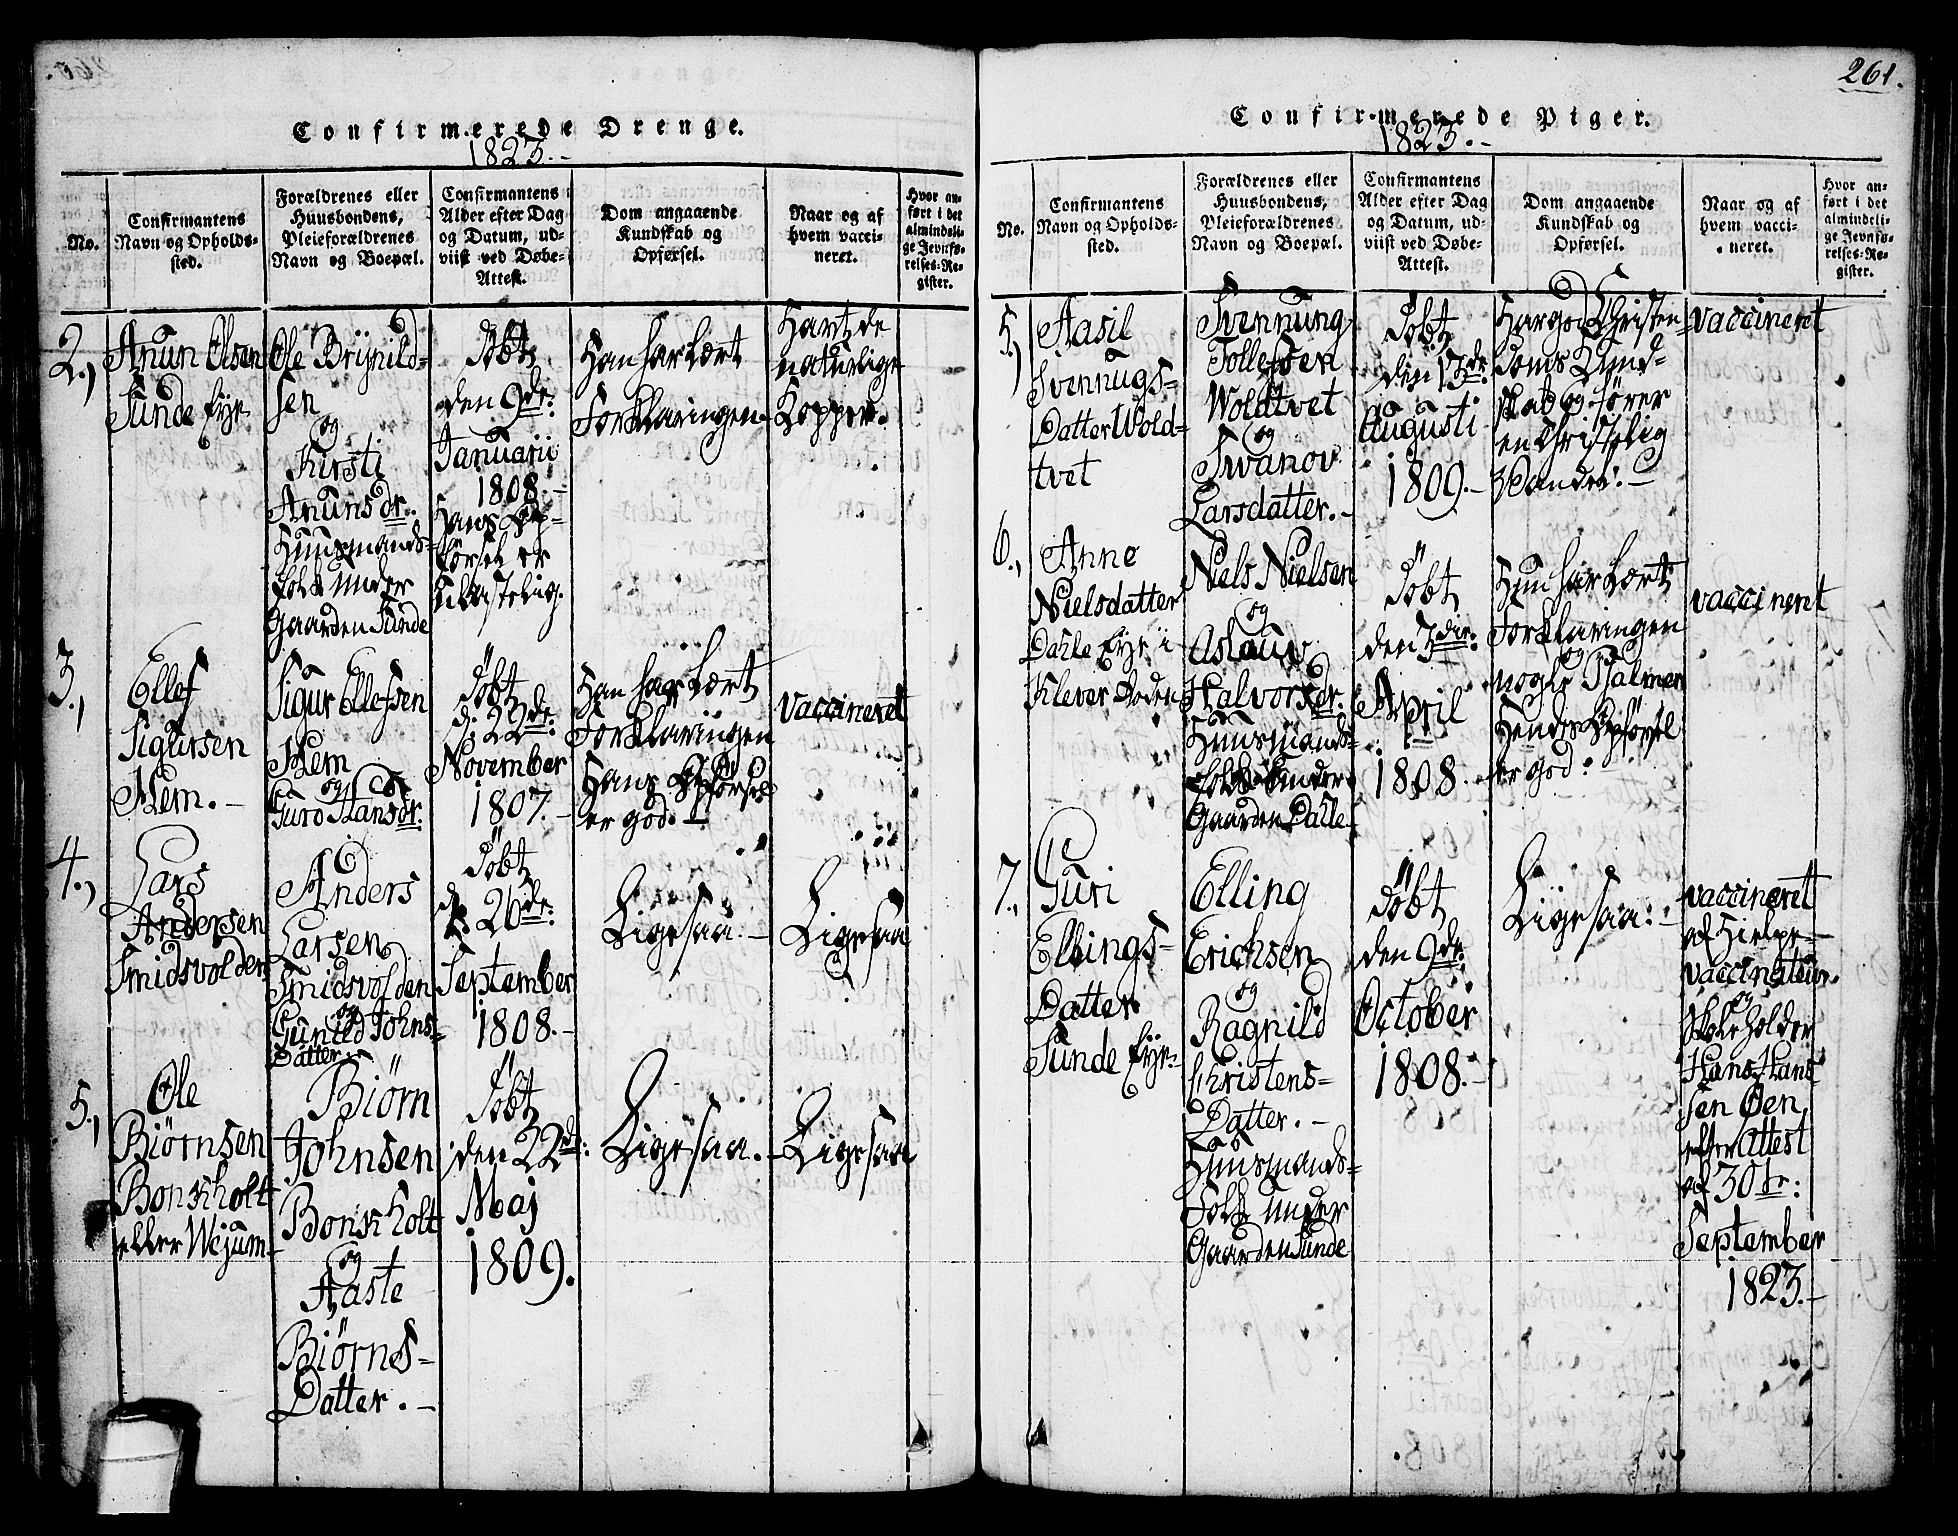 261.
Confirmerede Drenge.
1823.-
No.
Confirmantens
Navn og Opholds-
sted.
Forældrenes eller
Huusbondens,
Pleieforældrenes
Navn og Boepæl.
Confirmantens
Alder efter Dag
og Datum, ud-
viist ved Døbe-
Attest.
Dom angaaende
Kundskab og
Opførsel.
Naar og af
hvem vacci-
neret.
Hvor an-
ført i det
almindeli-
ge Jevnfø-
relses-Re-
gister.
2.,
Anun Olsen
Sunde Eye
Ole Brynild-
sen
og
Kirsti
Anunsdr.
Huusmands-
folk under
Gaarden Sunde
Döbt
den 9de:
Januarii
1808.-
Hans Op-
førsel er
Han har lært
Forklaringen.
Havt de
naturlige
Kopper.
3.,
Ellef
Sigursen
Kem.-
Sigur Ellefsen
Kem
og
Guro Hansdr.
Döbt
d. 22de:
November
1807.-
Han har lært
Forklaringen
Hans Opførsel
er god.-
vaccineret
4.,
Lars
Andersen
Smidsvolden
Anders
Larsen
Smidsvolden
og
Gunild Johns-
Datter.
Döbt
d. 26de:
September
1808.-
Ligesaa.-
Ligesaa
5.,
Ole
Biørnsen
Bonskholt
eller Wejum-
Biörn
Johnsen
Bonskholt
og
Aaste
Biørns-
Datter.-
Döbt
den 22d:
Maj
1809.
Ligesaa.-
Ligesaa
Confirmerede Piger.
1823.-
No.
Confirmantens
Navn og Opholds-
sted.
Forældrenes eller
Huusbondens,
Pleieforældrenes
Navn og Boepæl.
Confirmantens
Alder efter Dag
og Datum, ud-
viist ved Døbe-
Attest.
Dom angaaende
Kundskab og
Opførsel.
Naar og af
hvem vacci-
neret.
Hvor an-
ført i det
almindeli-
ge Jevnfø-
relses-Re-
gister.
5.,
Aasil
Svennugs-
Datter Wold-
tvet
Svennung
Tollefsen
Woldtvet
og
Swanov
Larsdatter.-
Döbt
den 13de:
Augusti
1809.-
Har god Christen-
doms Kund-
skab og fører
en Christelig
Vandel.-
vaccineret
6.,
Anne
Nielsdatter
Dahle Eye i
Niels Nielsen
og
Aslaug
Halvorsdr.
Huusmands-
folk under
Gaarden Dahle-
Döbt
den 3die:
April
1808.
Hun har lært
Forklaringen
og
nogle Psalmer
Hendes Opførsel
er god.
vaccineret
7.,
Guri
Ellings-
Datter
Sunde Eye-
Elling
Erichsen
og
Ragnild
Christens-
Datter.-
Huusmands-
Folk under
Gaarden Sunde
Döbt
den 9de:
October
1808.-
Ligesaa.-
vaccineret
af Hielpe-
vaccinateur
og
Skoleholder
Hans Hans-
sen Øen
efter Attest
af 30te:
September
1823.-